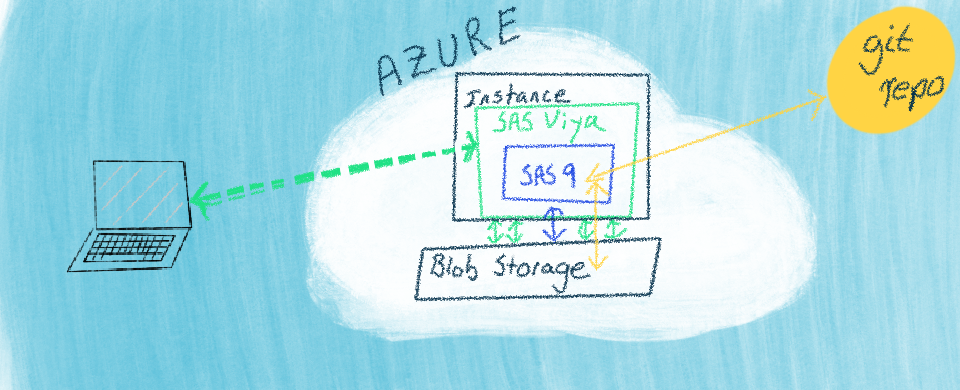 AZURE
Instance
SAS Viya
SAS 9
Blob Storage
git
repo